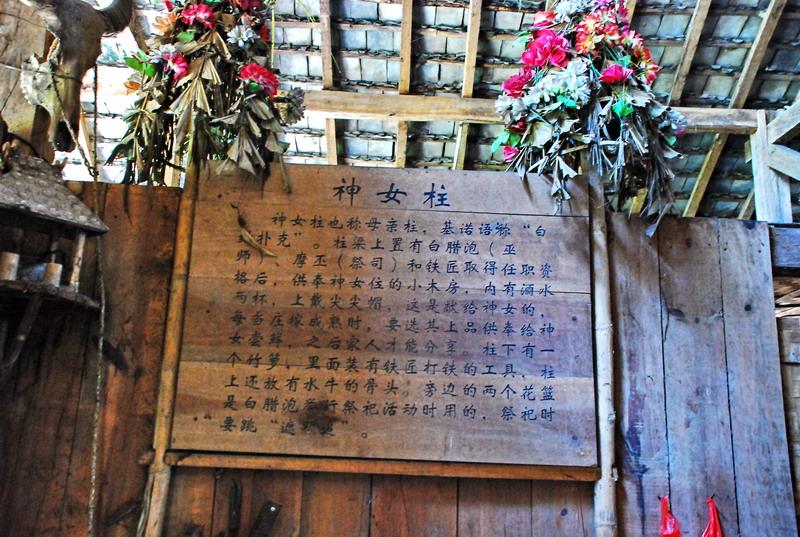 神女柱
神女柱也称母亲柱，基诺语称“白
扑克”。柱梁上置有白腊泡（巫
师）、摩丕（祭司）和铁匠取得任职资
格后，供奉神女住的小木房，内有酒水
两杯，上戴尖尖帽，这是献给神女的，
每当庄稼成熟时，要选其上品供奉给神
女尝鲜，之后家人才能分享。柱下有一
个竹箩，里面装有铁匠打铁的工具，柱
上还放有水牛的骨头。旁边的两个花篮
是白腊泡举行祭祀活动时用的，祭祀时
要跳“
”。